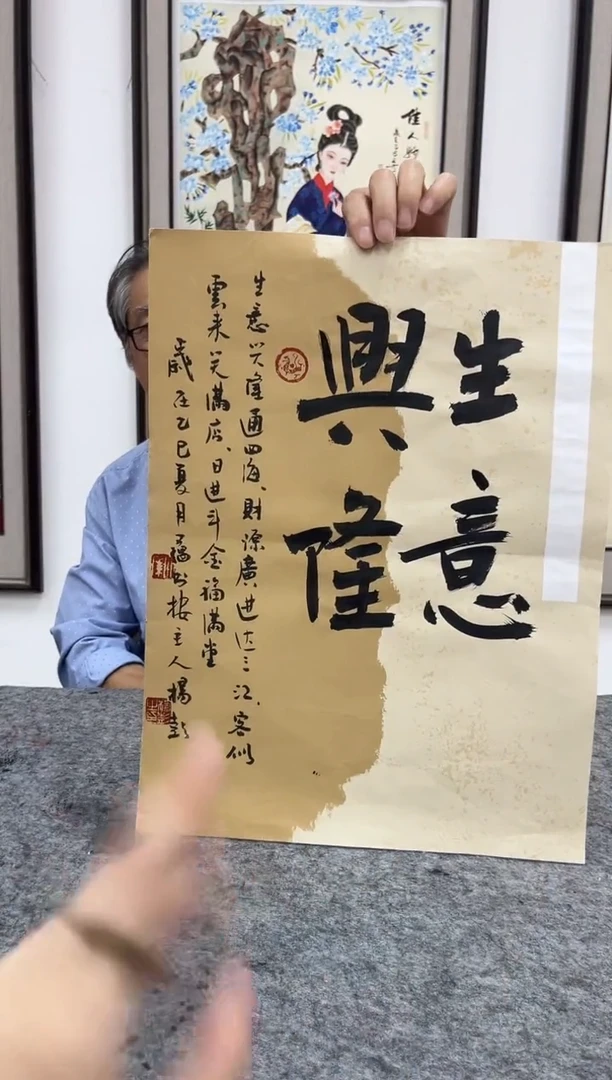 生意
興隆
生意兴隆通四海、財源廣進达三江、客似
雲来笑满店、日進斗金福满堂
歲在乙巳夏月福
楼主人楊彭
佳人